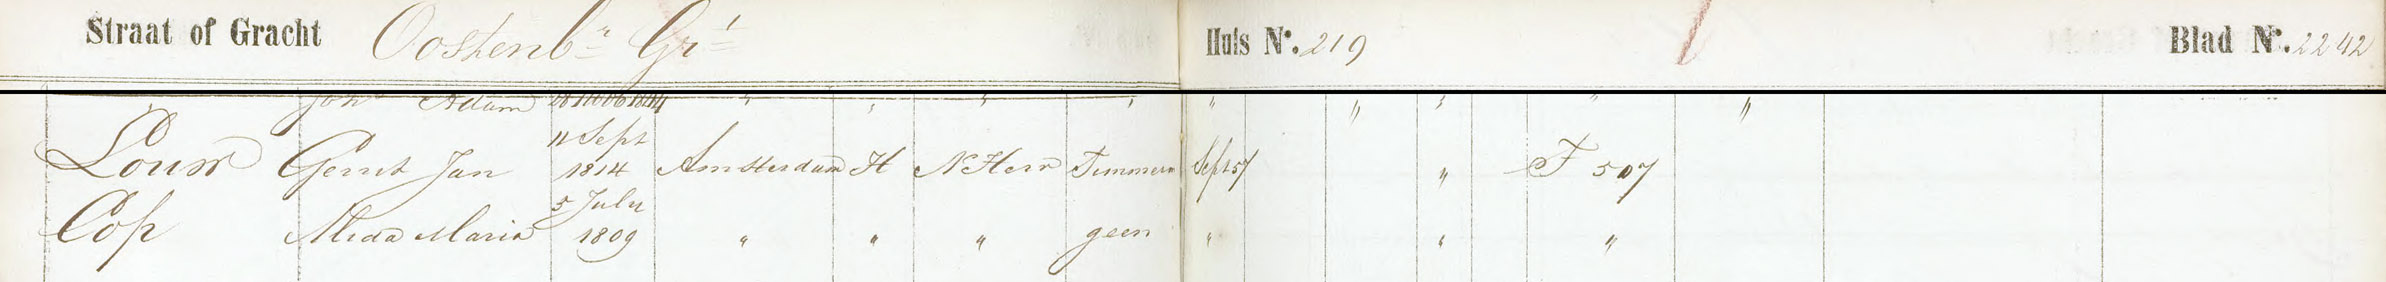 Straat of Gracht Oostenbr Grt Huis No. 219 Blad No. 2242
Adam " " " " " " " " "
11 Sept
Louw Gerrit Jan 1814 Amsterdam H N Herv Timmerm Sept 57 " F 507
5 July
Cop Alida Maria 1809 " " " geen " " "